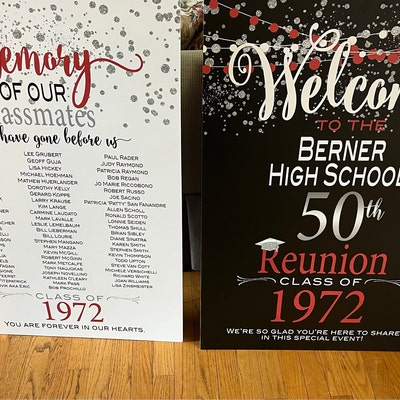 emory
OF OUR
lassmates
have gone before us
LEE GRUBERT
GEOFF GUJA
LISA HICKEY
MICHAEL HOEHMAN
MATHEW HUERLANDER
DOROTHY KELLY
GERARD KOPPE
LARRY KRAUSE
KIM LANGE
CARMINE LAUDATO
MARK LAVALLE
LESLIE LEMELBAUM
BILL LIEBERMAN
BILL LOURIE
STEPHEN MANGANO
MARY MAZZA
KEVIN MCGILL
ROBERT MCGINN
MARK METCALFE
TONY NAUJOKAS
JOSEPH NOVELLINO
KATHLEEN O'LEARY
MARK PASS
PAUL RADER
JUDY RAYMOND
PATRICIA RAYMOND
BOB REGAN
JO MARIE RICCOBONO
ROBERT RUSSO
JOE SACINO
PATRICIA 'PATTY' SAN FANANDRE
ALLEN SCHOLL
RONALD SCOTTO
LENNIE SEIDEN
THOMAS SHULL
BRIAN SIBLEY
DIANE SINATRA
KAREN SMITH
STEPHEN SMITH
KEVIN THOMPSON
TODD UPTON
STEVE VAN COTT
MICHELE VERSICHELLI
RICHARD WHITE
JOAN WILLIAMS
LISA ZINSMEISTER
BOB PROCHILLO
CLASS OF
1972
YOU ARE FOREVER IN OUR HEARTS.
Welcom
TO THE
BERNER
HIGH SCHOOL
50th
Reunion
CLASS OF
1972
WE'RE SO GLAD YOU'RE HERE TO SHARE
IN THIS SPECIAL EVENT!